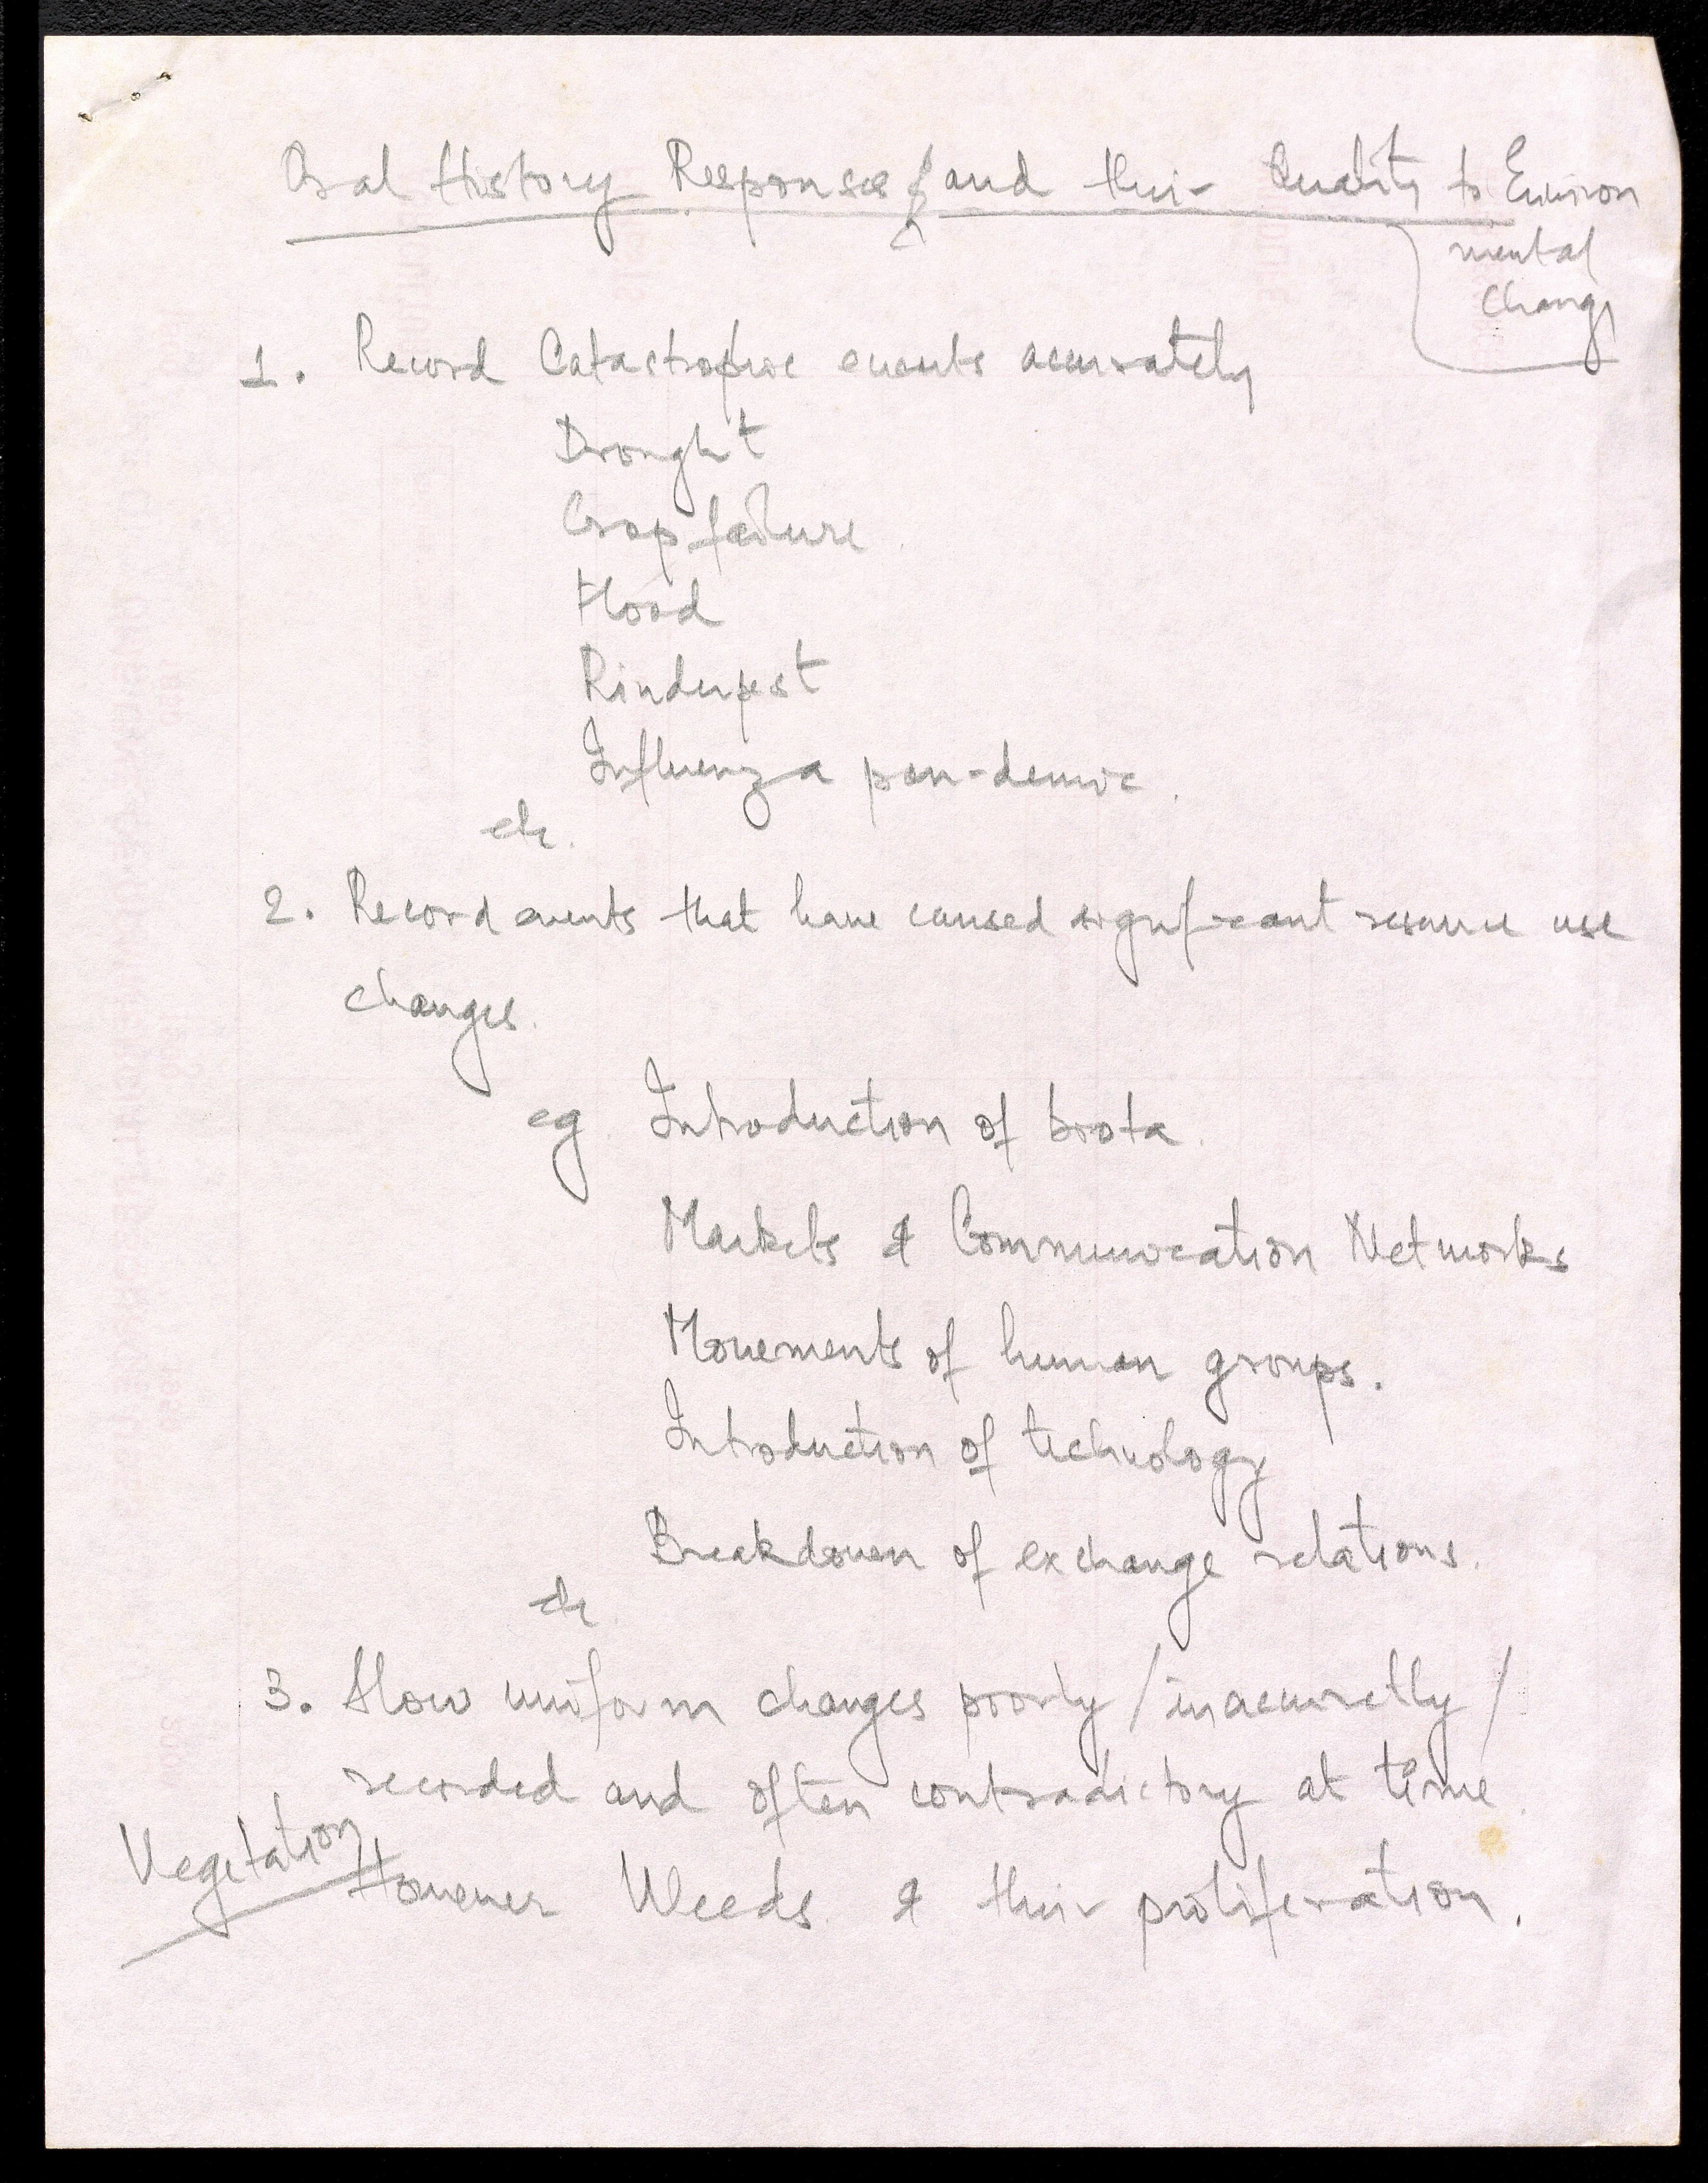 Oral History Responses and their Quality to Environ
mental
Change
1. Record Catastrophic events accurately
Drought
Crop failure
Flood
Rinderpest
Influenza pan-demic.
etc.
2. Record events that have caused significant resource use
changes.
eg Introduction of biota.
Markets & Communication Networks
Movements of human groups.
Introduction of technology
Breakdown of exchange relations.
etc.
3. Slow uniform changes poorly / inaccuretly /
recorded and often contradictory at time.
Vegetation
However Weeds & their proliferation.